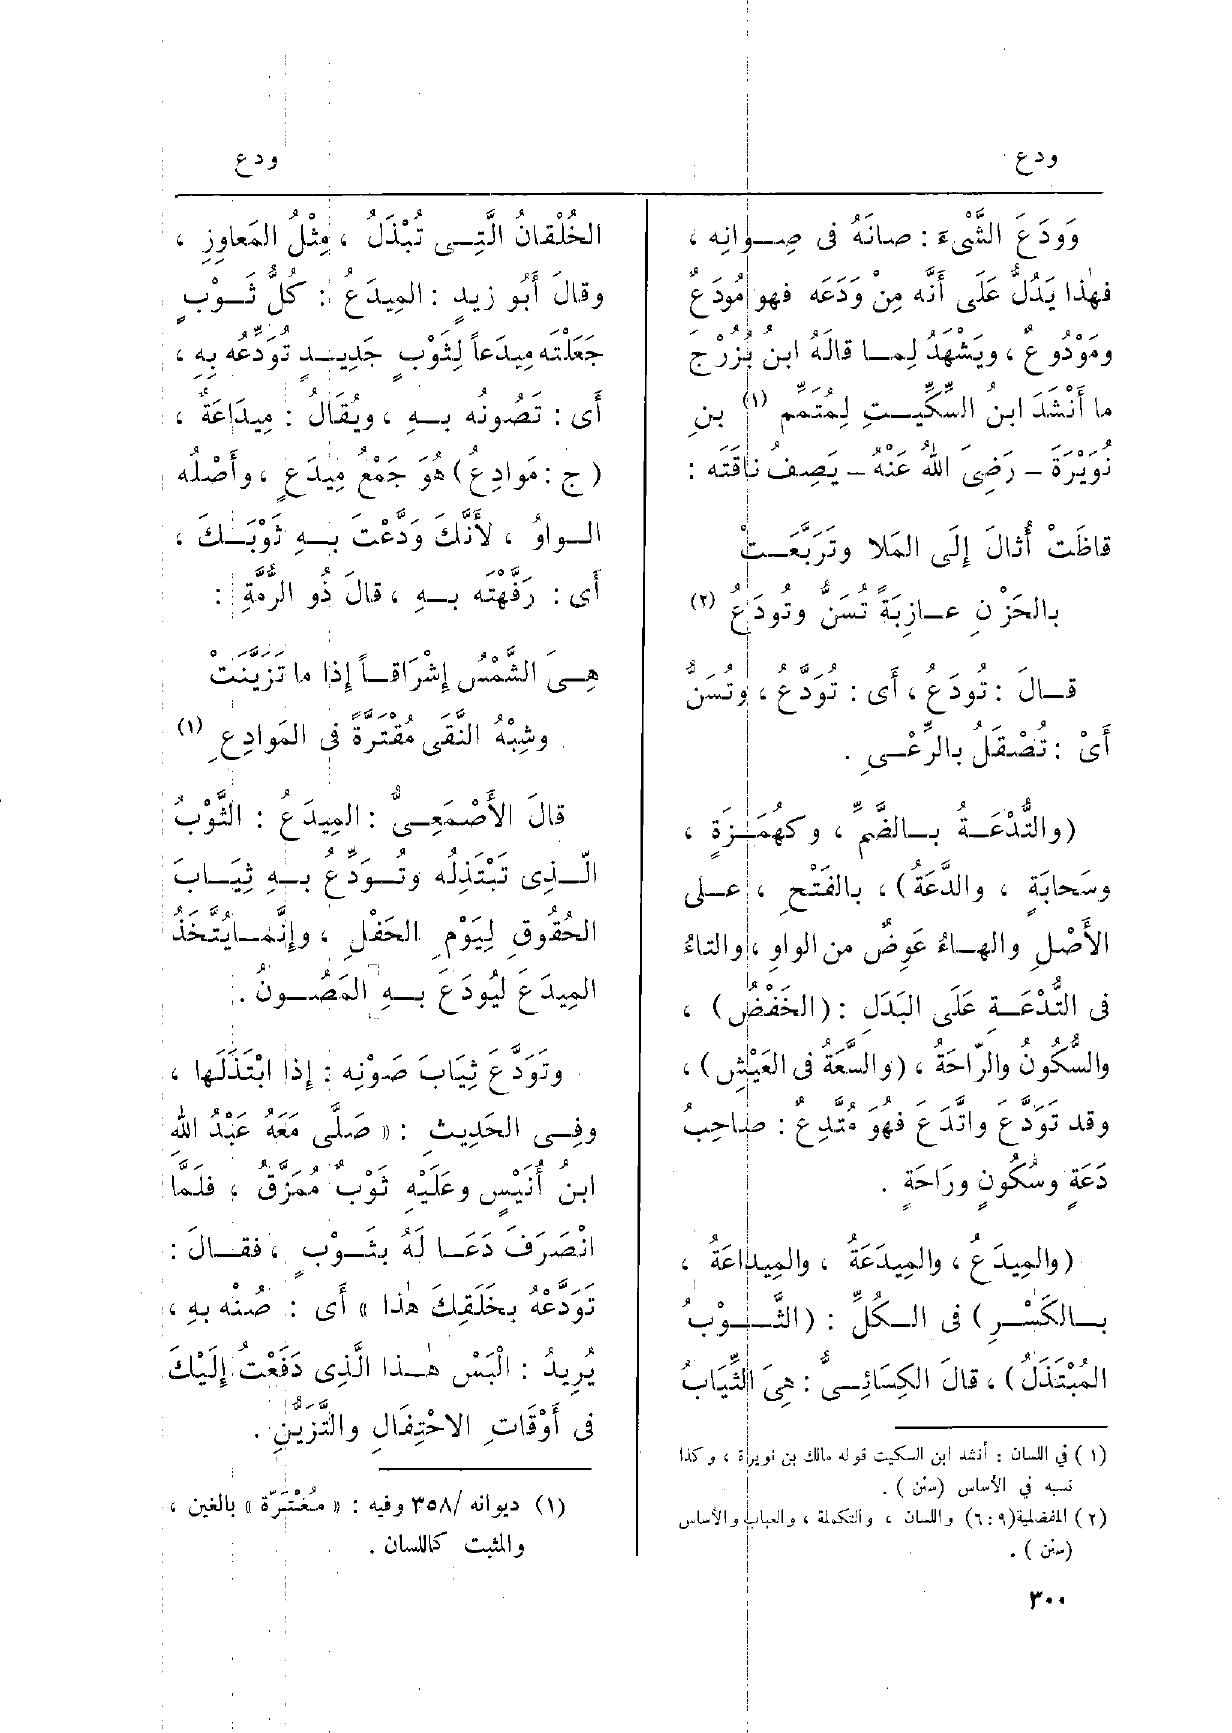 ودع
ودع
وَوَدَعَ الشَّيْءَ : صانَهُ فى صِـوانِه ،
فهٰذا يَدُلُّ عَلَى أَنَّه مِنْ وَدَعَه فهو مُودَعٌ
ومَوْدُوعٌ ، ويَشْهَدُ لِمـا قالَهُ ابنُ بُزُرْجَ
ما أَنْشَدَ ابنُ السِّكِّيـتِ لِمُتَمِّمِ (١) بنِ
نُوَيْرَةَ – رَضِىَ اللهُ عَنْهُ – يَصِفُ ناقَتَه :
قاظَتْ أُثالَ إِلَى المَلا وتَرَبَّعَـتْ
بالحَزْنِ عـازِبَةً تُسَنُّ وتُودَعُ (٢)
قـالَ : تُودَعُ ، أَى : تُوَدَّعُ ، وتُسَنُّ
أَىْ : تُصْقَلُ بالرِّعْـىِ .
(والتُّدْعَـةُ بـالضَّمِّ ، وكهُمَـزَةٍ ،
وسَحابَةٍ ، والدَّعَةُ) ، بالفَتْحِ ، عـلى
الأَصْلِ والهـاءُ عَوِضٌ من الواوِ ، والتاءُ
فى التُّدْعَـةِ عَلَى البَدَلِ : (الخَفْضُ) ،
والسُّكُونُ والرّاحَةُ ، (والسَّعَةُ فى العَيْشِ) ،
وقد تَوَدَّعَ واتَّدَعَ فهُوَ مُتَّدِعٌ : صاحِبُ
دَعَةٍ وسُكُونٍ ورَاحَةٍ .
(والمِيدَعُ ، والمِيدَعَةُ ، والمِيداعَةُ ،
بـالكَسْـرِ) فى الـكُلِّ : (الثَّـوْبُ
المُبْتَذَلُ) ، قالَ الكِسَائِـىُّ : هِىَ الثِّيَابُ
(١) في اللسان : أنشد ابن السكيت قوله مالك بن نويرة ، وكذا
نسبه في الأساس (سنن) .
(٢) المفضلية (٩ : ٦) واللسان ، والتكملة ، والعباب والأساس
(سنن) .
٣٠٠
الخُلْقانُ الَّتِـى تُبْذَلُ ، مِثْلُ المَعاوِزِ ،
وقالَ أَبُو زيدٍ : المِيدَعُ : كُلُّ ثَـوْبٍ
جَعَلْتَه مِيدَعاً لِثَوْبٍ جَدِيـدٍ تُوَدِّعُه بِهِ ،
أَى : تَصُونُه بـهِ ، ويُقَالُ : مِيدَاعَةٌ ،
( ج : مَوادِعُ) هُوَ جَمْعُ مِيدَعٍ ، وأَصْلُه
الـواوُ ، لأَنَّكَ وَدَّعْتَ بـهِ ثَوْبَـكَ ،
أَى : رَفَّهْتَه بـهِ ، قالَ ذُو الرُّمَّةِ :
هِـىَ الشَّمْسُ إِشْرَاقـاً إِذا ما تَزَيَّنَتْ
وشِبْهُ النَّقَى مُقْتَرَّةً فى المَوادِعِ (١)
قالَ الأَصْمَعِـىُّ : المِيدَعُ : الثَّوْبُ
الَّـذِى تَبْتَذِلُه وتُـوَدِّعُ بـهِ ثِيَـابَ
الحُقُوقِ لِيَوْمِ الحَفْلِ ، وإِنَّمـا يُتَّخَذُ
المِيدَعُ لِيُودَعَ بـهِ المَصُـونُ .
وتَوَدَّعَ ثِيابَ صَوْنِه : إِذا ابْتَذَلَها ،
وفِـى الحَدِيثِ : « صَلَّى مَعَهُ عَبْدُ اللهِ
ابنُ أُنَيْسٍ وعَلَيْهِ ثَوْبٌ مُمَزَّقٌ ، فلَمَّا
انْصَرَفَ دَعَـا لَهُ بثَـوْبٍ ، فقـالَ :
تَوَدَّعْهُ بخَلَقِكَ هٰذا » أَى : صُنْه بِهِ ،
يُرِيدُ : الْبَسْ هٰـذا الَّذِى دَفَعْتُ إِلَيْكَ
فى أَوْقَاتِ الاحْتِفَالِ والتَّزَيُّنِ .
(١) ديوانه /٣٥٨ وفيه : « مُغْتَرَّة » بالغين ،
والمثبت كاللسان .